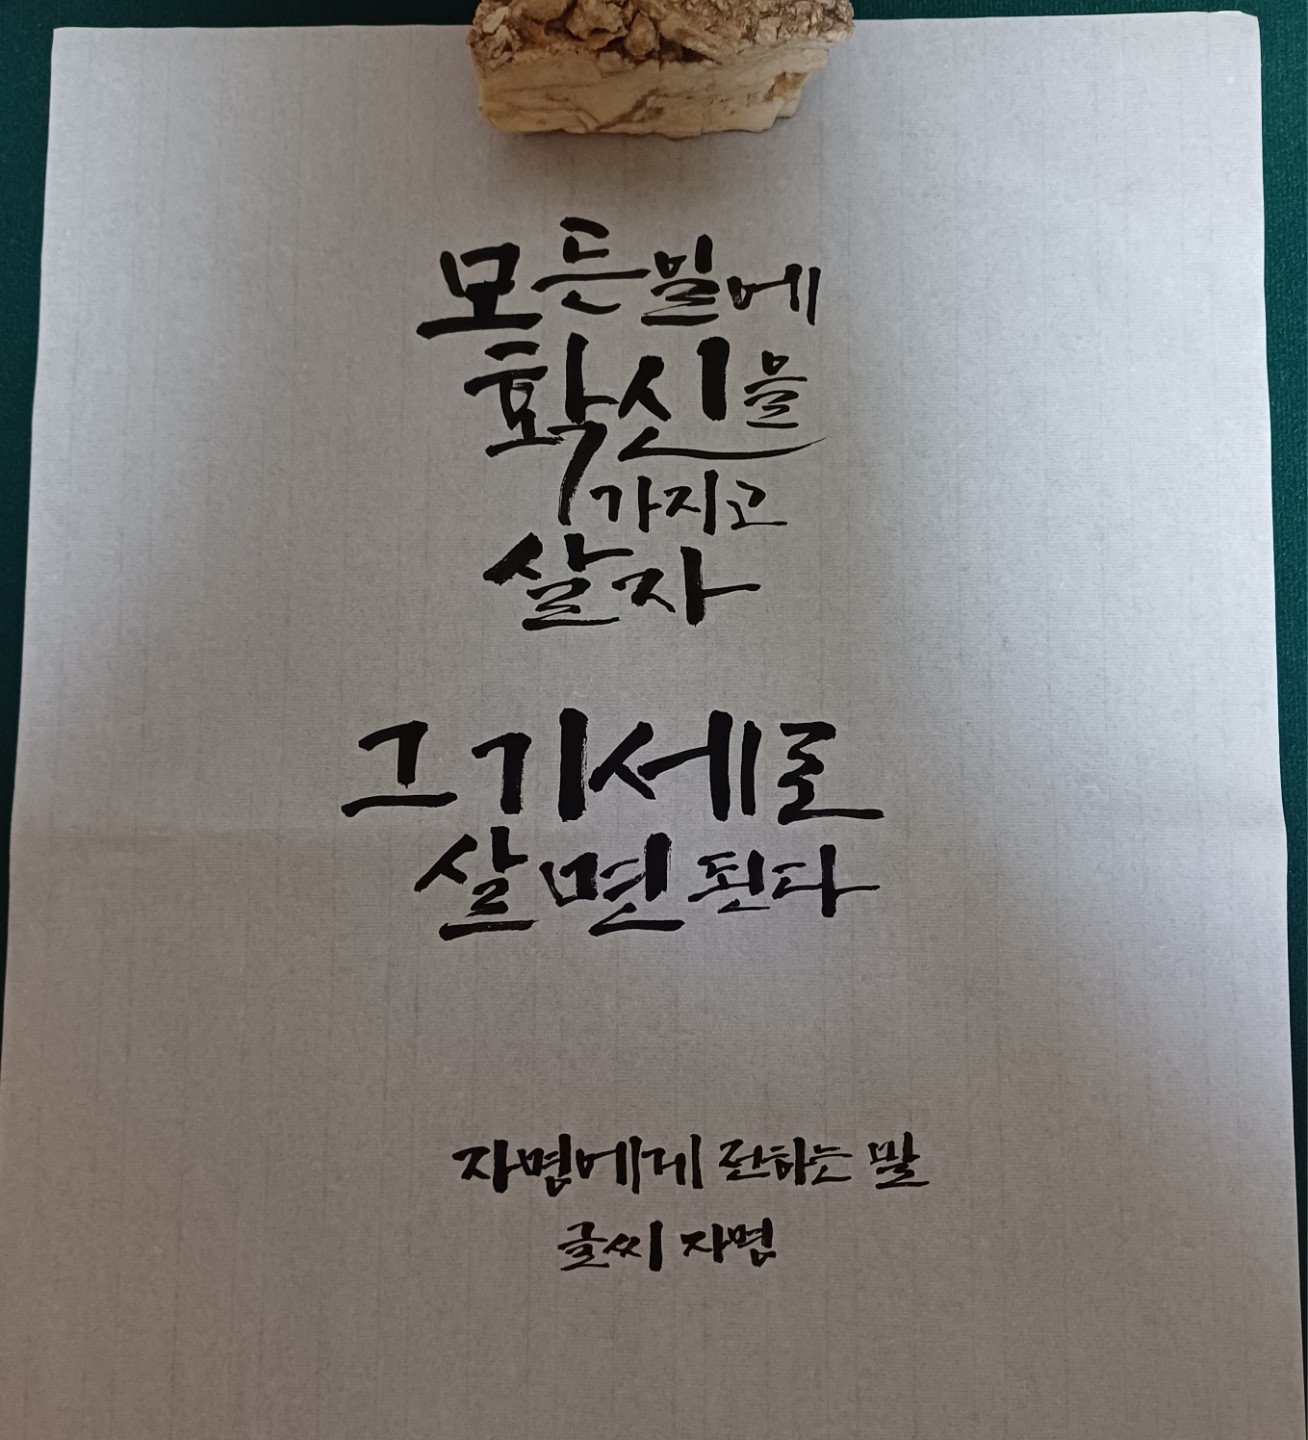 모든 일에
확신을
가지고
살자
그 기세로
살면 된다
자명에게 전하는 말
글씨 자명